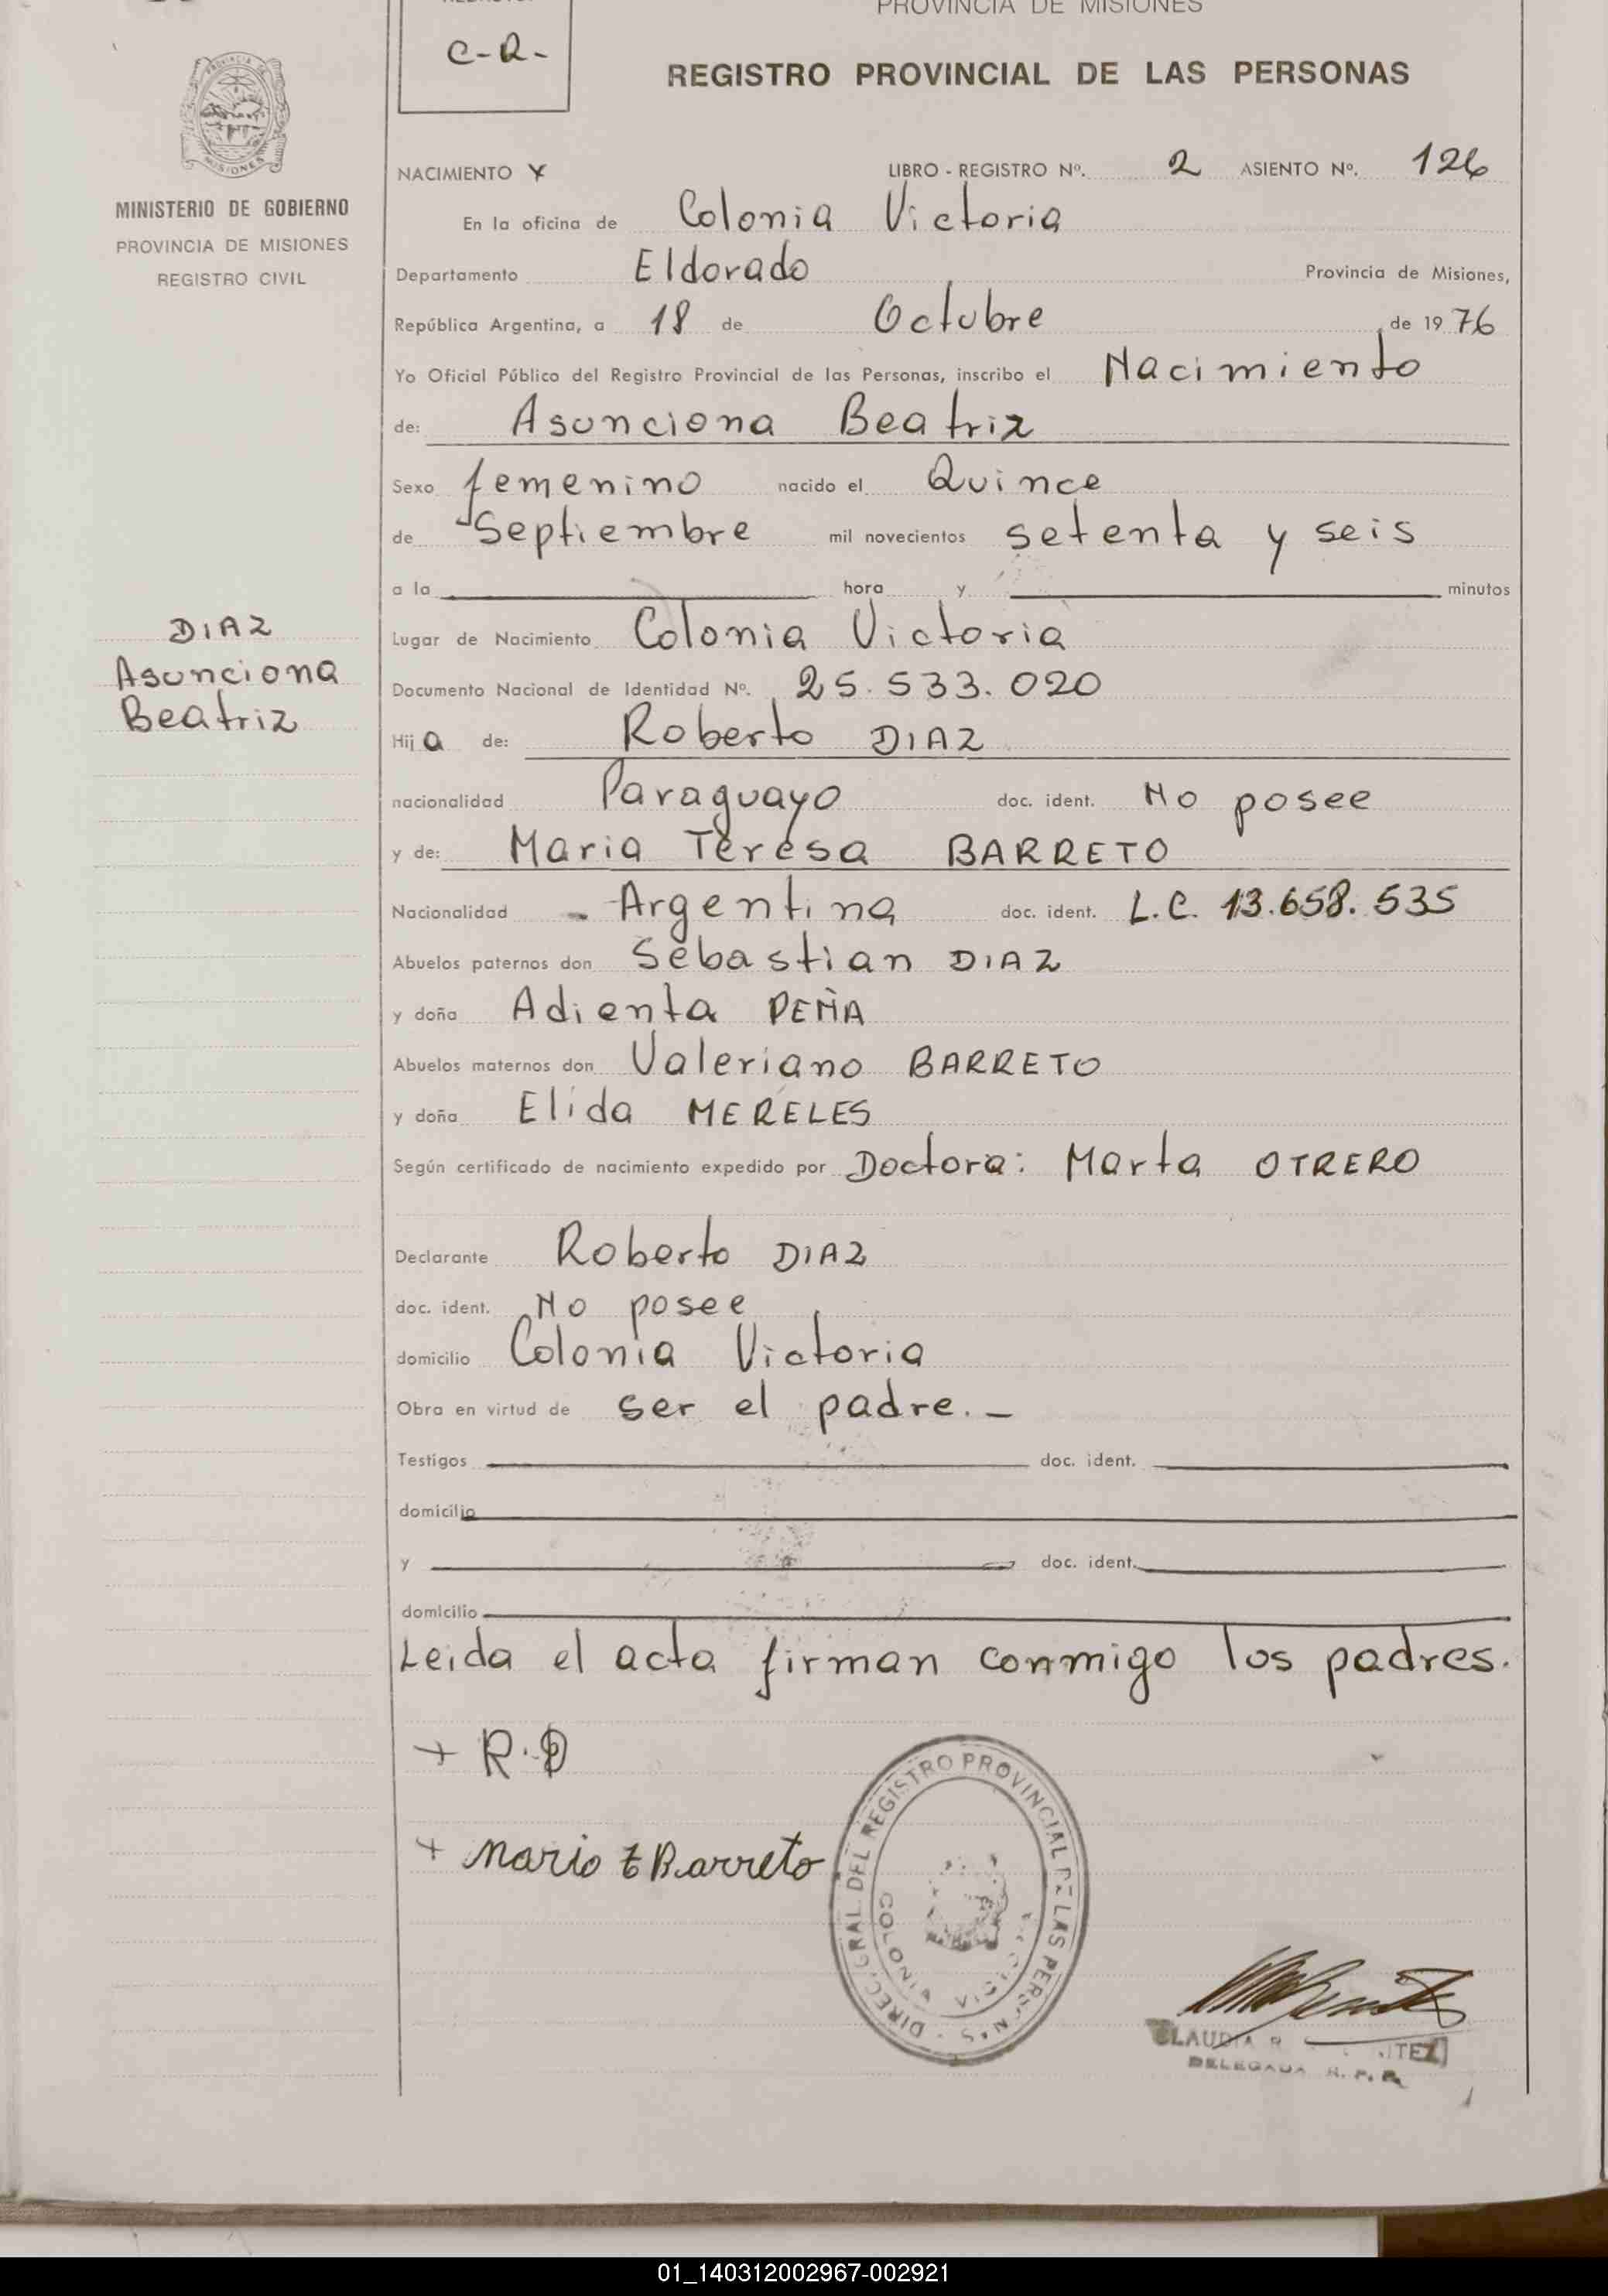 PROVINCIA DE MISIONES
C-R-
REGISTRO PROVINCIAL DE LAS PERSONAS
MISIONES
MINISTERIO DE GOBIERNO
PROVINCIA DE MISIONES
REGISTRO CIVIL
NACIMIENTO X LIBRO - REGISTRO Nº. 2 ASIENTO Nº. 126
En la oficina de Colonia Victoria
Departamento Eldorado Provincia de Misiones,
República Argentina, a 18 de Octubre de 1976
Yo Oficial Público del Registro Provincial de las Personas, inscribo el Nacimiento
de: Asunciona Beatriz
Sexo femenino nacido el Quince
de Septiembre mil novecientos setenta y seis
a la hora y minutos
DIAZ
Asunciona
Beatriz
Lugar de Nacimiento Colonia Victoria
Documento Nacional de Identidad Nº. 25.533.020
Hija de: Roberto DIAZ
nacionalidad Paraguayo doc. ident. No posee
y de: Maria Teresa BARRETO
Nacionalidad - Argentina doc. ident. L.C. 13.658.535
Abuelos paternos don Sebastian DIAZ
y doña Adienta PEÑA
Abuelos maternos don Valeriano BARRETO
y doña Elida MERELES
Según certificado de nacimiento expedido por Doctora: Marta OTRERO
Declarante Roberto DIAZ
doc. ident. No posee
domicilio Colonia Victoria
Obra en virtud de ser el padre.-
Testigos doc. ident.
domicilio
y doc. ident.
domicilio
Leida el acta firman conmigo los padres.
+ R.D
+ Mario t Barreto
DIREC. GRAL. DEL REGISTRO PROVINCIAL DE LAS PERSONAS
COLONIA VICTORIA
CLAUDIA R.
DELEGADA R. P. P.
01_140312002967-002921